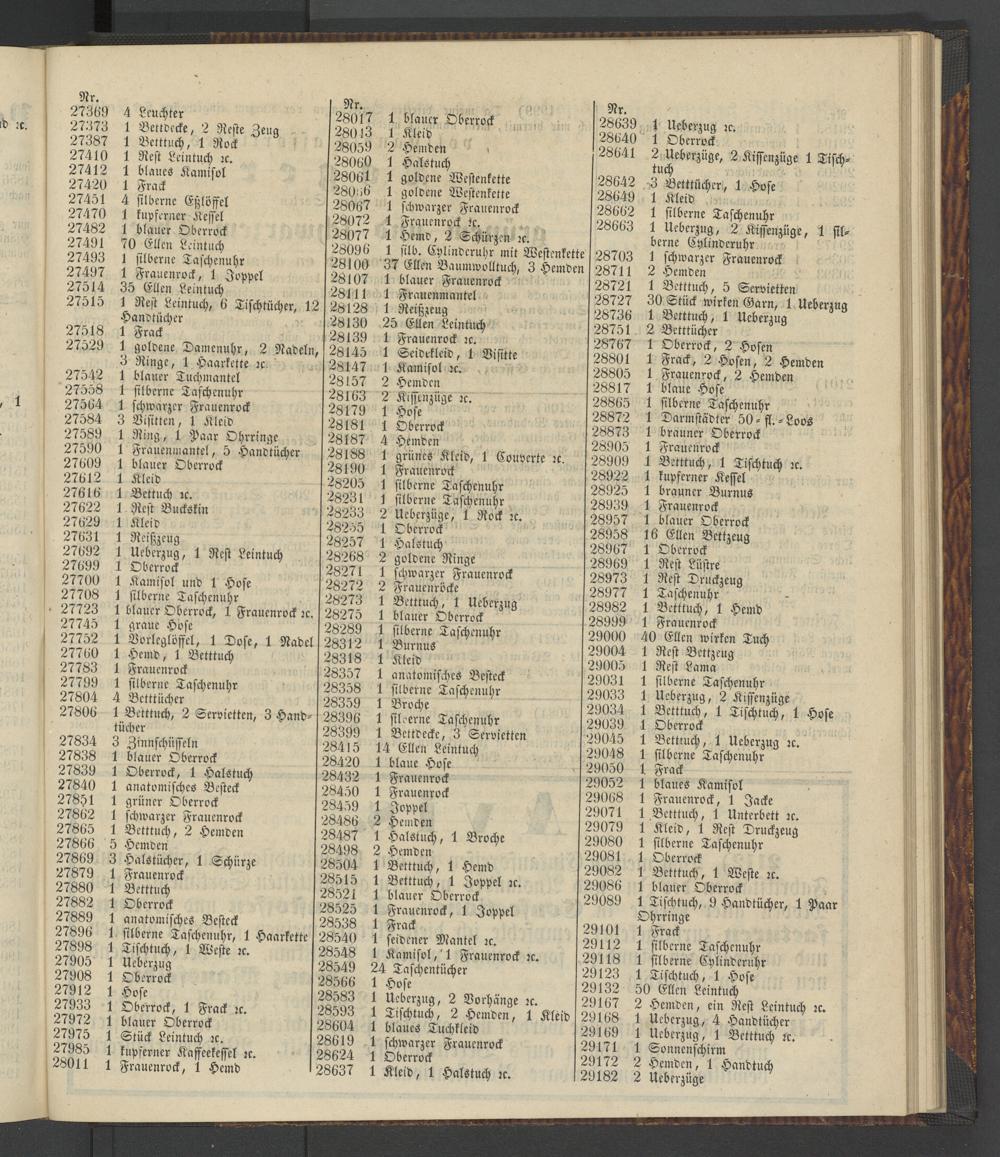 Nr.
27369 4 Leuchter
27373 1 Bettdecke, 2 Reste Zeug
27387 1 Betttuch, 1 Rock
27410 1 Rest Leintuch ꝛc.
27412 1 blaues Kamisol
27420 1 Frack
27451 4 silberne Eßlöffel
27470 1 kupferner Kessel
27482 1 blauer Oberrock
27491 70 Ellen Leintuch
27493 1 silberne Taschenuhr
27497 1 Frauenrock, 1 Joppel
27514 35 Ellen Leintuch
27515 1 Rest Leintuch, 6 Tischtücher, 12
Handtücher
27518 1 Frack
27529 1 goldene Damenuhr, 2 Nadeln,
3 Ringe, 1 Haarkette ꝛc.
27542 1 blauer Tuchmantel
27558 1 silberne Taschenuhr
27564 1 schwarzer Frauenrock
27584 3 Visitten, 1 Kleid
27589 1 Ring, 1 Paar Ohrringe
27590 1 Frauenmantel, 5 Handtücher
27609 1 blauer Oberrock
27612 1 Kleid
27616 1 Bettuch ꝛc.
27622 1 Rest Buckskin
27629 1 Kleid
27631 1 Reißzeug
27692 1 Ueberzug, 1 Rest Leintuch
27699 1 Oberrock
27700 1 Kamisol und 1 Hose
27708 1 silberne Taschenuhr
27723 1 blauer Oberrock, 1 Frauenrock ꝛc.
27745 1 graue Hose
27752 1 Vorleglöffel, 1 Dose, 1 Nadel
27760 1 Hemd, 1 Betttuch
27783 1 Frauenrock
27799 1 silberne Taschenuhr
27804 4 Betttücher
27806 1 Betttuch, 2 Servietten, 3 Hand-
tücher
27834 3 Zinnschüsseln
27838 1 blauer Oberrock
27839 1 Oberrock, 1 Halstuch
27840 1 anatomisches Besteck
27851 1 grüner Oberrock
27862 1 schwarzer Frauenrock
27865 1 Betttuch, 2 Hemden
27866 5 Hemden
27869 3 Halstücher, 1 Schürze
27879 1 Frauenrock
27880 1 Betttuch
27882 1 Oberrock
27889 1 anatomisches Besteck
27896 1 silberne Taschenuhr, 1 Haarkette
27898 1 Tischtuch, 1 Weste ꝛc.
27905 1 Ueberzug
27908 1 Oberrock
27912 1 Hose
27933 1 Oberrock, 1 Frack ꝛc.
27972 1 blauer Oberrock
27975 1 Stück Leintuch ꝛc.
27985 1 kupferner Kaffeekessel ꝛc.
28011 1 Frauenrock, 1 Hemd
Nr.
28017 1 blauer Oberrock
28043 1 Kleid
28059 2 Hemden
28060 1 Halstuch
28061 1 goldene Westenkette
28066 1 goldene Westenkette
28067 1 schwarzer Frauenrock
28072 1 Frauenrock ꝛc.
28077 1 Hemd, 2 Schürzen ꝛc.
28096 1 silb. Cylinderuhr mit Westenkette
28100 37 Ellen Baumwolltuch, 3 Hemden
28107 1 blauer Frauenrock
28111 1 Frauenmantel
28128 1 Reißzeug
28130 25 Ellen Leintuch
28139 1 Frauenrock ꝛc.
28145 1 Seidekleid, 1 Visitte
28147 1 Kamisol ꝛc.
28157 2 Hemden
28163 2 Kissenzüge ꝛc.
28179 1 Hose
28181 1 Oberrock
28187 4 Hemden
28188 1 grünes Kleid, 1 Couverte ꝛc.
28190 1 Frauenrock
28205 1 silberne Taschenuhr
28231 1 silberne Taschenuhr
28233 2 Ueberzüge, 1 Rock ꝛc.
28255 1 Oberrock
28257 1 Halstuch
28268 2 goldene Ringe
28271 1 schwarzer Frauenrock
28272 2 Frauenröcke
28273 1 Betttuch, 1 Ueberzug
28275 1 blauer Oberrock
28289 1 silberne Taschenuhr
28312 1 Burnus
28318 1 Kleid
28357 1 anatomisches Besteck
28358 1 silberne Taschenuhr
28359 1 Broche
28396 1 silberne Taschenuhr
28399 1 Bettdecke, 3 Servietten
28415 14 Ellen Leintuch
28420 1 blaue Hose
28432 1 Frauenrock
28450 1 Frauenrock
28459 1 Joppel
28486 2 Hemden
28487 1 Halstuch, 1 Broche
28498 2 Hemden
28504 1 Betttuch, 1 Hemd
28515 1 Betttuch, 1 Joppel ꝛc.
28521 1 blauer Oberrock
28525 1 Frauenrock, 1 Joppel
28538 1 Frack
28540 1 seidener Mantel ꝛc.
28548 1 Kamisol, 1 Frauenrock ꝛc.
28549 24 Taschentücher
28566 1 Hose
28583 1 Ueberzug, 2 Vorhänge ꝛc.
28593 1 Tischtuch, 2 Hemden, 1 Kleid
28604 1 blaues Tuchkleid
28619 1 schwarzer Frauenrock
28624 1 Oberrock
28637 1 Kleid, 1 Halstuch ꝛc.
Nr.
28639 1 Ueberzug ꝛc.
28640 1 Oberrock
28641 2 Ueberzüge, 2 Kissenzüge 1 Tisch-
tuch
28642 3 Betttücher, 1 Hose
28649 1 Kleid
28662 1 silberne Taschenuhr
28663 1 Ueberzug, 2 Kissenzüge, 1 sil-
berne Cylinderuhr
28703 1 schwarzer Frauenrock
28711 2 Hemden
28721 1 Betttuch, 5 Servietten
28727 30 Stück wirken Garn, 1 Ueberzug
28736 1 Betttuch, 1 Ueberzug
28751 2 Betttücher
28767 1 Oberrock, 2 Hosen
28801 1 Frack, 2 Hosen, 2 Hemden
28805 1 Frauenrock, 2 Hemden
28817 1 blaue Hose
28865 1 silberne Taschenuhr
28872 1 Darmstädter 50-fl.-Loos
28873 1 brauner Oberrock
28905 1 Frauenrock
28909 1 Betttuch, 1 Tischtuch ꝛc.
28922 1 kupferner Kessel
28925 1 brauner Burnus
28939 1 Frauenrock
28957 1 blauer Oberrock
28958 16 Ellen Bettzeug
28967 1 Oberrock
28969 1 Rest Lüstre
28973 1 Rest Druckzeug
28977 1 Taschenuhr
28982 1 Betttuch, 1 Hemd
28999 1 Frauenrock
29000 40 Ellen wirken Tuch
29004 1 Rest Bettzeug
29005 1 Rest Lama
29031 1 silberne Taschenuhr
29033 1 Ueberzug, 2 Kissenzüge
29034 1 Betttuch, 1 Tischtuch, 1 Hose
29039 1 Oberrock
29045 1 Betttuch, 1 Ueberzug ꝛc.
29048 1 silberne Taschenuhr
29050 1 Frack
29052 1 blaues Kamisol
29068 1 Frauenrock, 1 Jacke
29071 1 Betttuch, 1 Unterbett ꝛc.
29079 1 Kleid, 1 Rest Druckzeug
29080 1 silberne Taschenuhr
29081 1 Oberrock
29082 1 Betttuch, 1 Weste ꝛc.
29086 1 blauer Oberrock
29089 1 Tischtuch, 9 Handtücher, 1 Paar
Ohrringe
29101 1 Frack
29112 1 silberne Taschenuhr
29118 1 silberne Cylinderuhr
29123 1 Tischtuch, 1 Hose
29132 50 Ellen Leintuch
29167 2 Hemden, ein Rest Leintuch ꝛc.
29168 1 Ueberzug, 4 Handtücher
29169 1 Ueberzug, 1 Betttuch ꝛc.
29171 1 Sonnenschirm
29172 2 Hemden, 1 Handtuch
29182 2 Ueberzüge